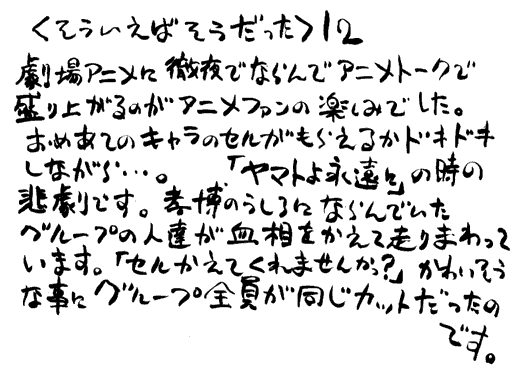 〈そういえばそうだった〉12
劇場アニメに徹夜でならんでアニメトークで
盛り上がるのがアニメファンの楽しみでした。
おめあてのキャラのセルがもらえるかドキドキ
しながら…。「ヤマトよ永遠に」の時の
悲劇です。孝博のうしろにならんでいた
グループの人達が血相をかえて走りまわって
います。「セルかえてくれませんかっ?」かわいそう
な事にグループ全員が同じカットだったの
です。